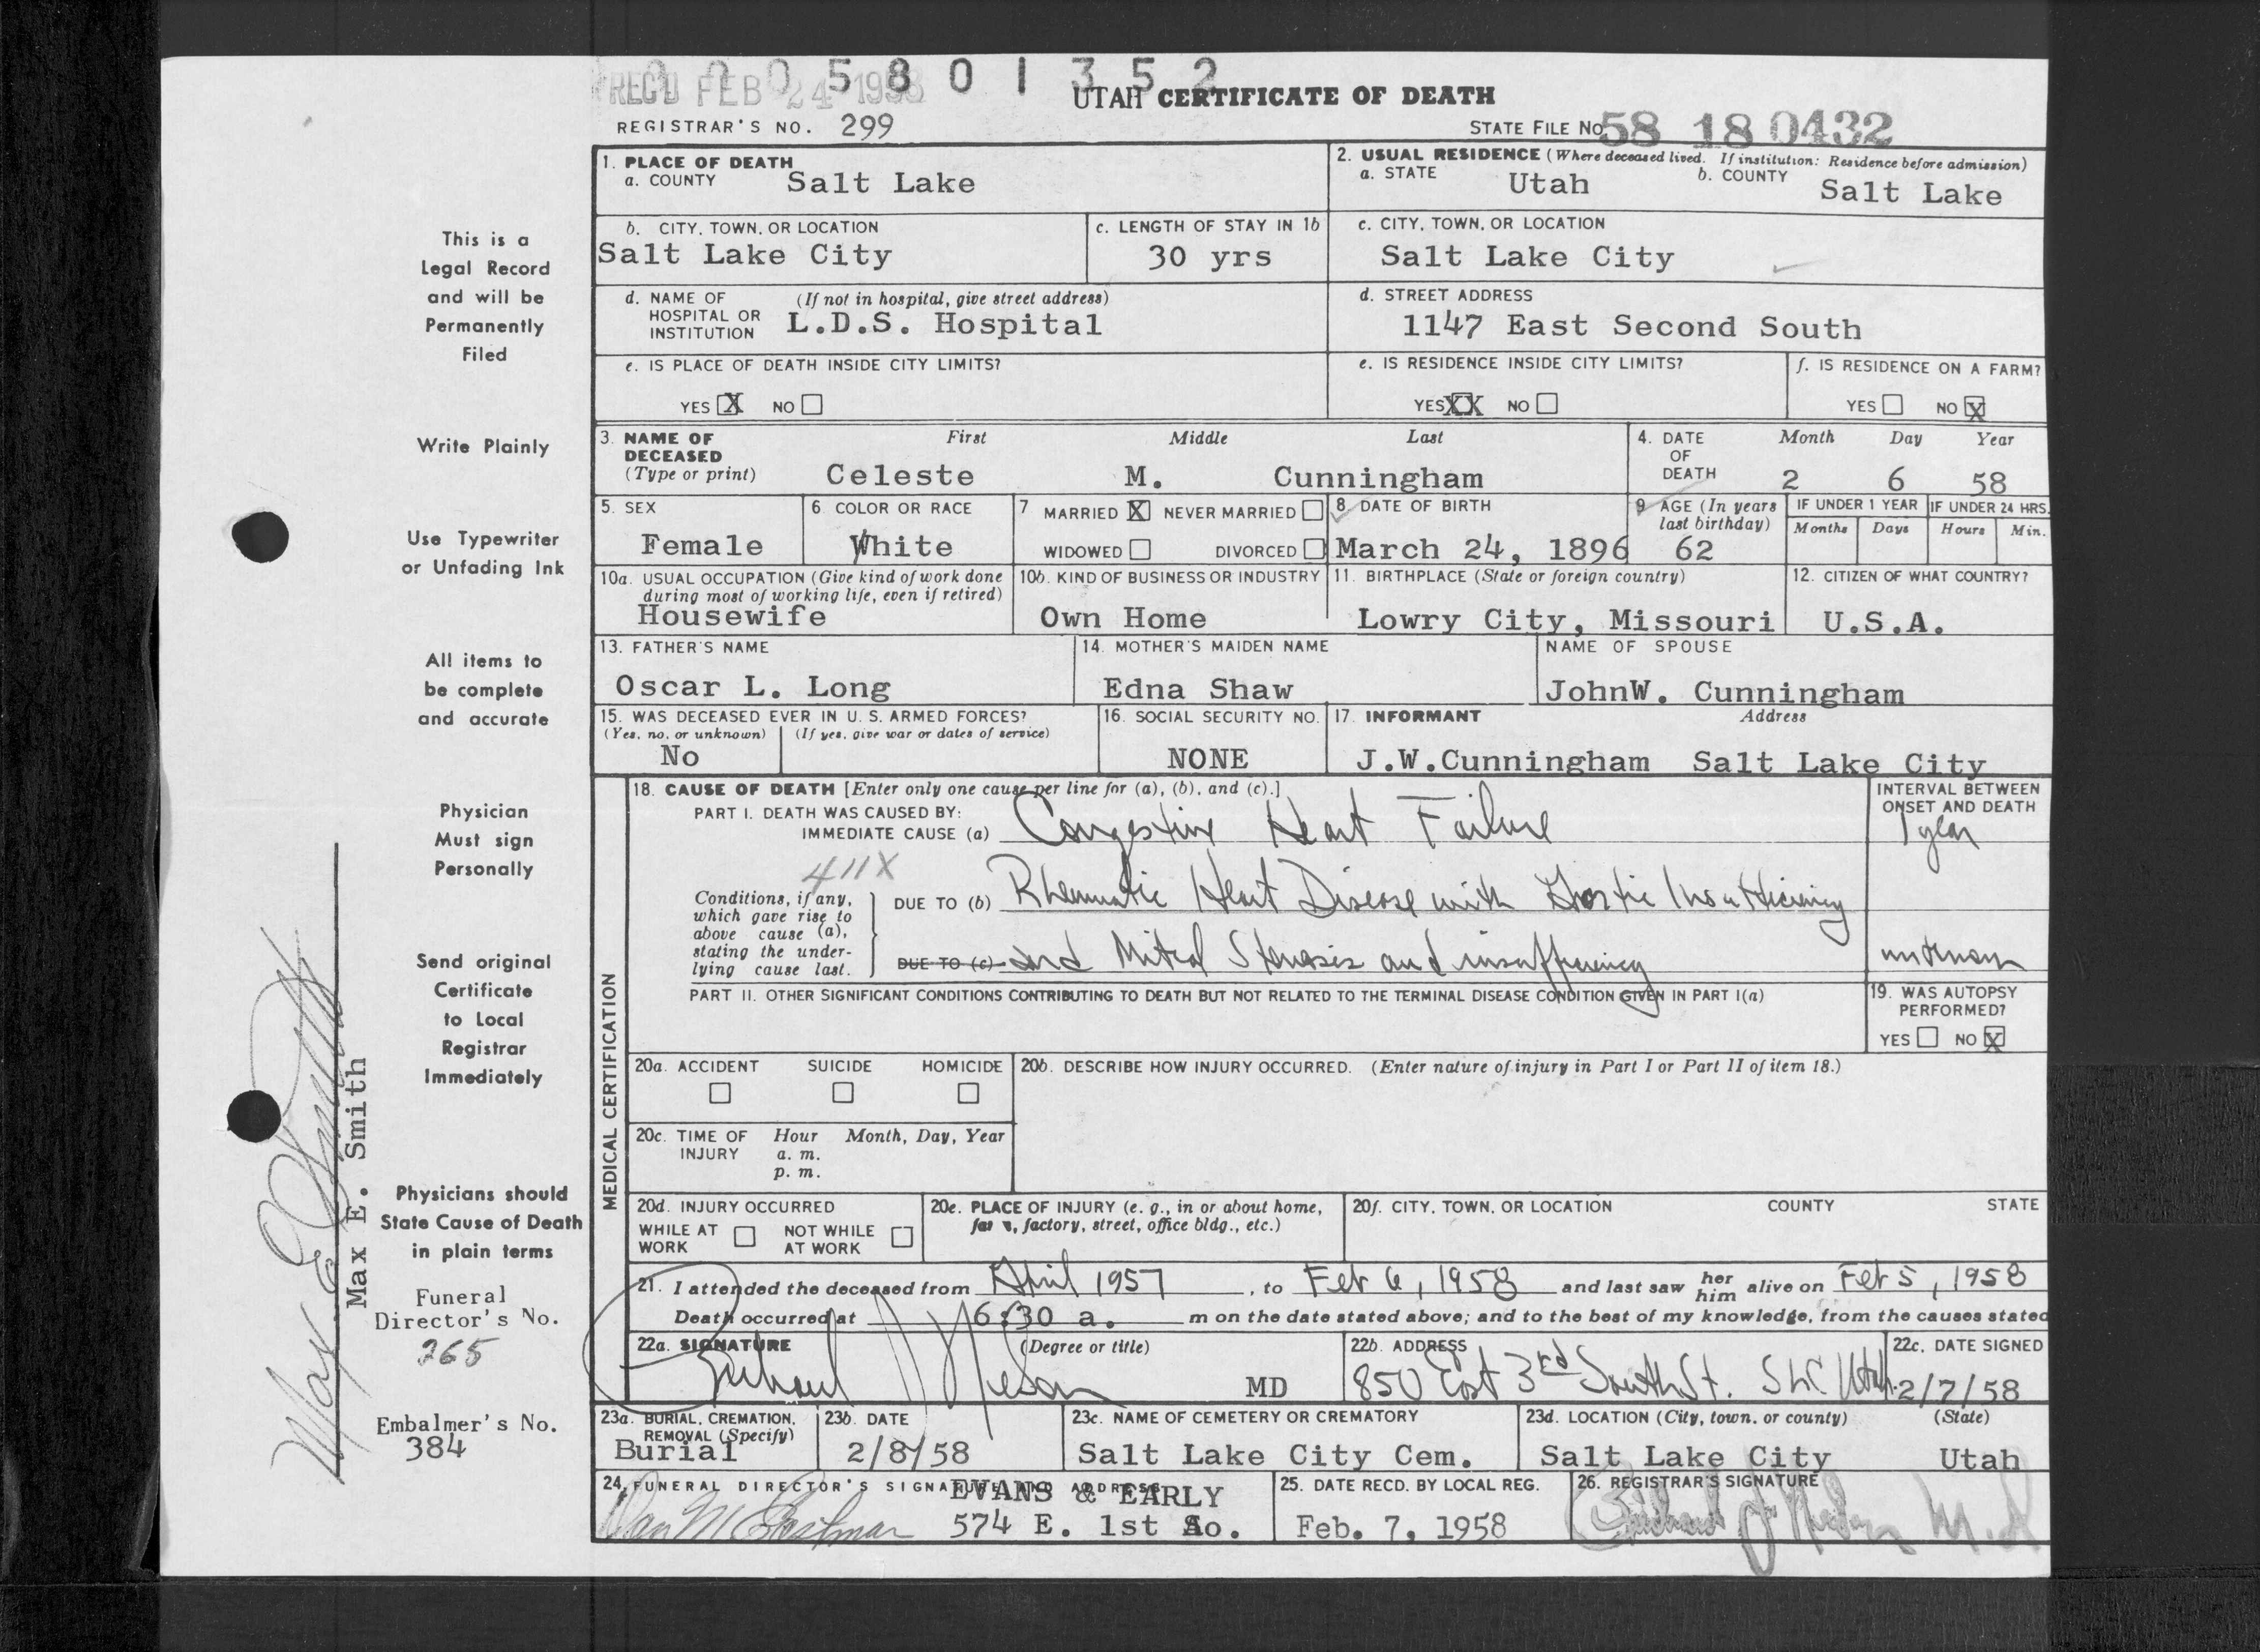 0005801352
REC'D FEB 24 1958
UTAH CERTIFICATE OF DEATH
REGISTRAR'S NO. 299
STATE FILE No 58 18 0432
1. PLACE OF DEATH
a. COUNTY Salt Lake
2. USUAL RESIDENCE (Where deceased lived. If institution: Residence before admission)
a. STATE Utah b. COUNTY Salt Lake
b. CITY, TOWN, OR LOCATION
Salt Lake City
c. LENGTH OF STAY IN 1b
30 yrs
c. CITY, TOWN, OR LOCATION
Salt Lake City
d. NAME OF HOSPITAL OR INSTITUTION (If not in hospital, give street address)
L.D.S. Hospital
d. STREET ADDRESS
1147 East Second South
e. IS PLACE OF DEATH INSIDE CITY LIMITS?
YES X NO
e. IS RESIDENCE INSIDE CITY LIMITS?
YES XX NO
f. IS RESIDENCE ON A FARM?
YES NO X
3. NAME OF DECEASED (Type or print)
First Middle Last
Celeste M. Cunningham
4. DATE OF DEATH
Month Day Year
2 6 58
5. SEX
Female
6. COLOR OR RACE
White
7 MARRIED X NEVER MARRIED
WIDOWED DIVORCED
8. DATE OF BIRTH
March 24, 1896
9. AGE (In years last birthday)
62
IF UNDER 1 YEAR
Months Days
IF UNDER 24 HRS.
Hours Min.
10a. USUAL OCCUPATION (Give kind of work done during most of working life, even if retired)
Housewife
10b. KIND OF BUSINESS OR INDUSTRY
Own Home
11. BIRTHPLACE (State or foreign country)
Lowry City, Missouri
12. CITIZEN OF WHAT COUNTRY?
U.S.A.
13. FATHER'S NAME
Oscar L. Long
14. MOTHER'S MAIDEN NAME
Edna Shaw
NAME OF SPOUSE
JohnW. Cunningham
15. WAS DECEASED EVER IN U. S. ARMED FORCES?
(Yes, no, or unknown) (If yes, give war or dates of service)
No
16. SOCIAL SECURITY NO.
NONE
17. INFORMANT Address
J.W.Cunningham Salt Lake City
MEDICAL CERTIFICATION
18. CAUSE OF DEATH [Enter only one cause per line for (a), (b), and (c).]
INTERVAL BETWEEN ONSET AND DEATH
PART I. DEATH WAS CAUSED BY:
IMMEDIATE CAUSE (a) Congestive Heart Failure 1 year
411X
Conditions, if any, which gave rise to above cause (a), stating the underlying cause last.
DUE TO (b) Rheumatic Heart Disease with Aortic Insufficiency
DUE TO (c) and Mitral Stenosis and insufficiency unknown
PART II. OTHER SIGNIFICANT CONDITIONS CONTRIBUTING TO DEATH BUT NOT RELATED TO THE TERMINAL DISEASE CONDITION GIVEN IN PART I(a)
19. WAS AUTOPSY PERFORMED?
YES NO X
20a. ACCIDENT SUICIDE HOMICIDE
20b. DESCRIBE HOW INJURY OCCURRED. (Enter nature of injury in Part I or Part II of item 18.)
20c. TIME OF INJURY Hour Month, Day, Year
a. m.
p. m.
20d. INJURY OCCURRED
WHILE AT WORK NOT WHILE AT WORK
20e. PLACE OF INJURY (e. g., in or about home, farm, factory, street, office bldg., etc.)
20f. CITY, TOWN, OR LOCATION COUNTY STATE
21. I attended the deceased from April 1957, to Feb 6, 1958 and last saw her him alive on Feb 5, 1958
Death occurred at 6:30 a. m on the date stated above; and to the best of my knowledge, from the causes stated
22a. SIGNATURE (Degree or title)
Richard J Nelson MD
22b. ADDRESS
850 East 3rd South St. SLC Utah
22c. DATE SIGNED
2/7/58
23a. BURIAL, CREMATION, REMOVAL (Specify)
Burial
23b. DATE
2/8/58
23c. NAME OF CEMETERY OR CREMATORY
Salt Lake City Cem.
23d. LOCATION (City, town, or county) (State)
Salt Lake City Utah
24. FUNERAL DIRECTOR'S SIGNATURE AND ADDRESS
EVANS & EARLY
574 E. 1st So.
25. DATE RECD. BY LOCAL REG.
Feb. 7, 1958
26. REGISTRAR'S SIGNATURE
This is a
Legal Record
and will be
Permanently
Filed
Write Plainly
Use Typewriter
or Unfading Ink
All items to
be complete
and accurate
Physician
Must sign
Personally
Send original
Certificate
to Local
Registrar
Immediately
Physicians should
State Cause of Death
in plain terms
Funeral
Director's No.
265
Embalmer's No.
384
Max E. Smith
Max E. Smith